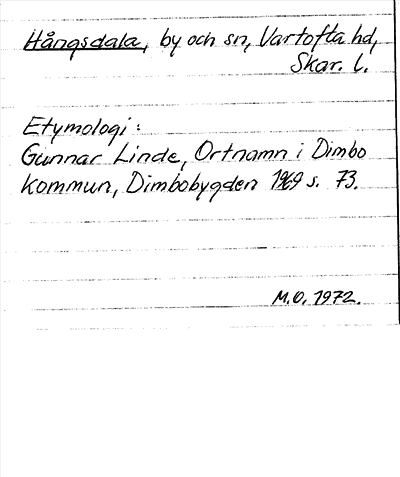 Hångsdala, by och sn, Vartofta hd,
Skar. l.
Etymologi:
Gunnar Linde, Ortnamn i Dimbo
kommun, Dimbobygden 1969 s. 73.
M.O. 1972.